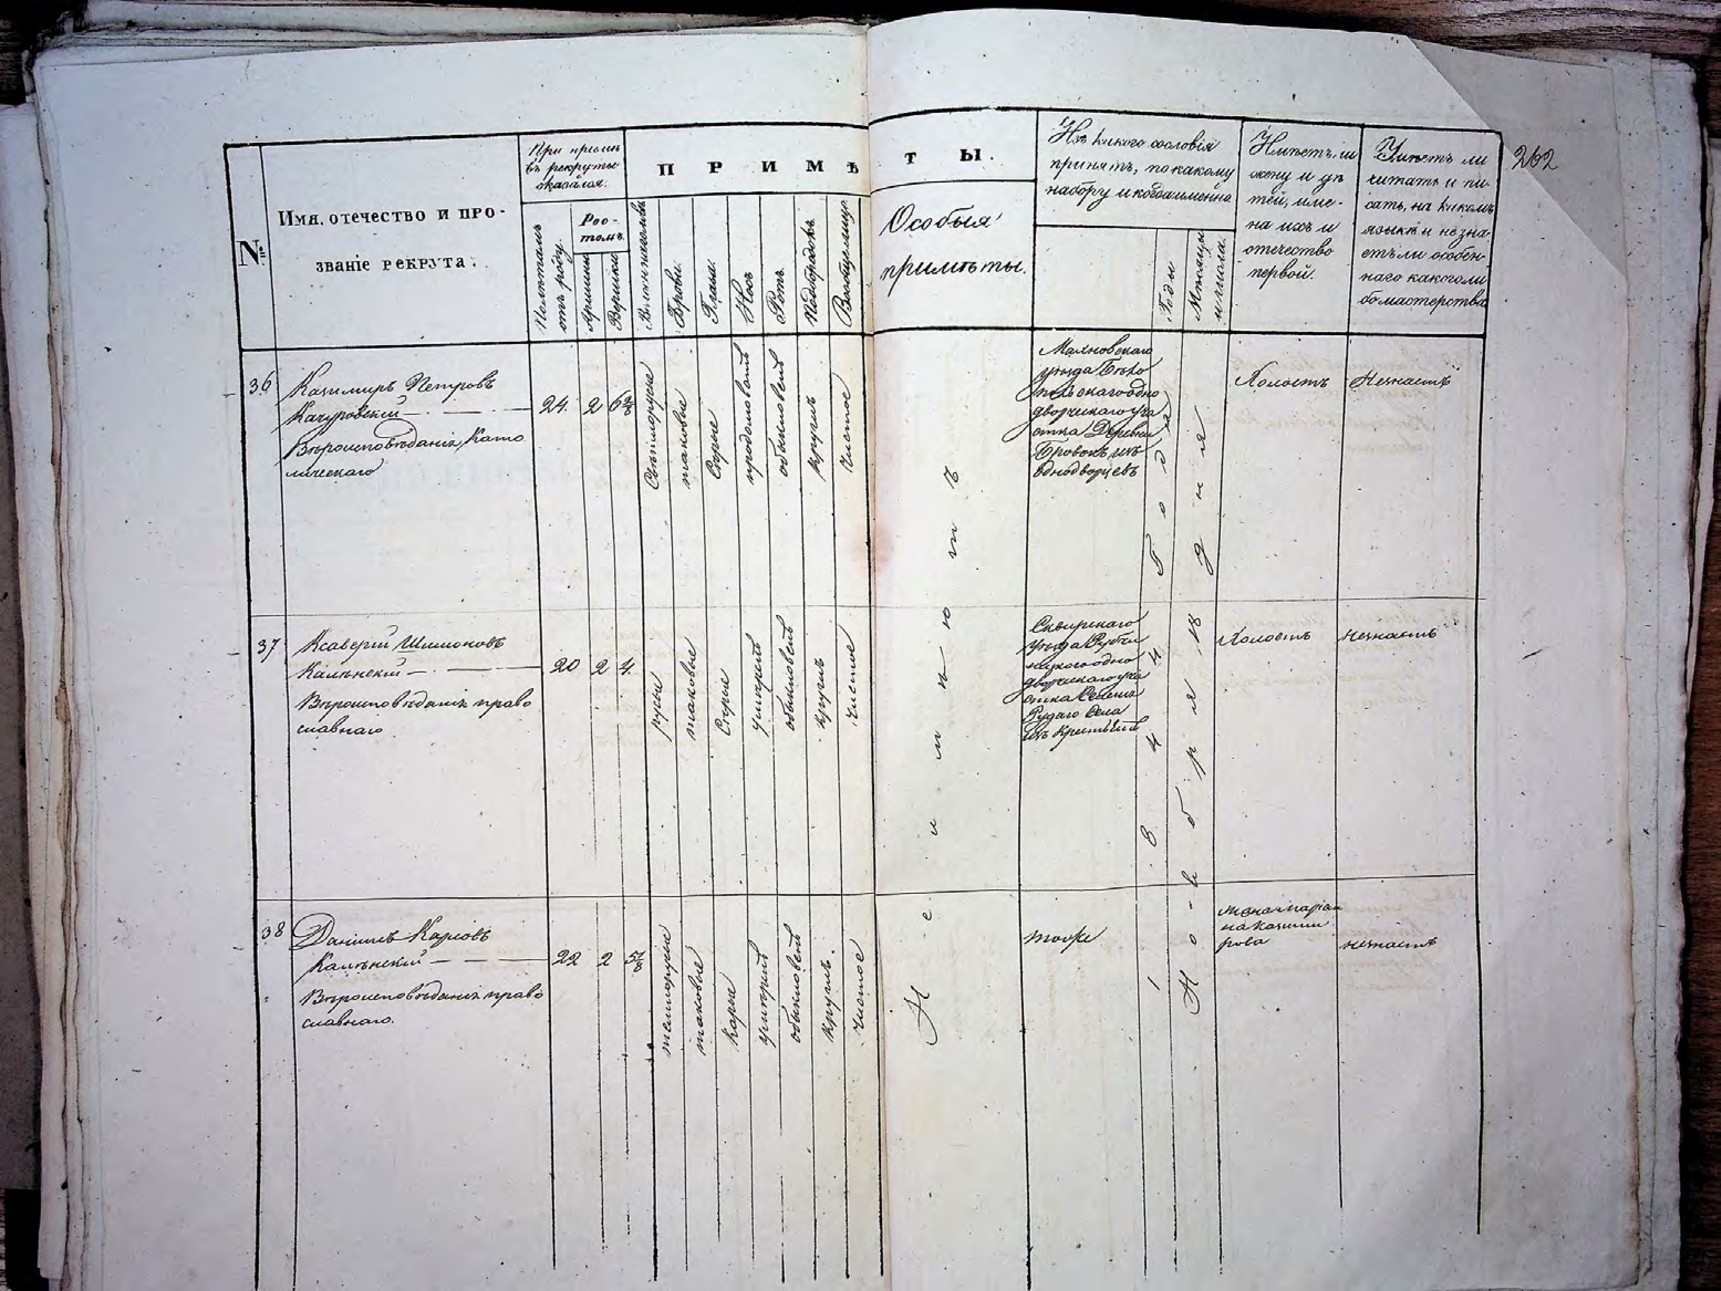 262
№
Имя, отечество и про-
званіе рекрута.
При пріемѣ
въ рекруты
оказался.
 Неѣлѣтамъ
отъ роду.
Рос-
томъ.
Аршины
Вершки
П Р И М Ѣ Т Ы.
Брови.
Глаза.
Носъ
Ротъ.
Подбородокъ
Вообще лицо
Особыя
примѣты.
Изъ какого сословія
принятъ, по какому
набору и когда именно
Годы
Мѣсяцы
и числа.
Имѣетъ ли
жену и дѣ
тей, име-
на ихъ и
отечество
первой.
Умѣетъ ли
читать и пи-
сать, на какомъ
языкѣ и не зна-
етъ ли особен-
наго какого ли
бо мастерства
36
Казимиръ Петровъ
Качуровскій
Вѣроисповѣданія Като
лическаго
24. 2 6⅜
Свѣтлорусые
таковые
Сѣрые
продолговатъ
обыкновенъ
круглъ
чистое
Махновскаго
уѣзда
одно
дворческаго уча
стка Деревни
изъ
однодворцевъ
Холостъ
Незнаетъ
37
Ксаверій Шимоновъ
Калѣнскій
Вѣроисповѣданія право
славнаго
20 2 4
русые
таковые
Сѣрые
умѣренъ
обыкновенъ
круглъ
чистое
Сквирскаго
уѣзда
одно
дворческаго уча
стка
Рудаго Села
изъ крестьянъ
Холостъ
незнаетъ
38
Данилъ Карповъ
Калѣнскій
Вѣроисповѣданія право
славнаго.
22 2 5⅞
темнорусые
таковые
карие
умѣренъ
обыкновенъ
круглъ.
чистое
тоже
жена Маріан
на Казими
рова
незнаетъ
Не имѣютъ
1844 Года
Ноября 18 дня